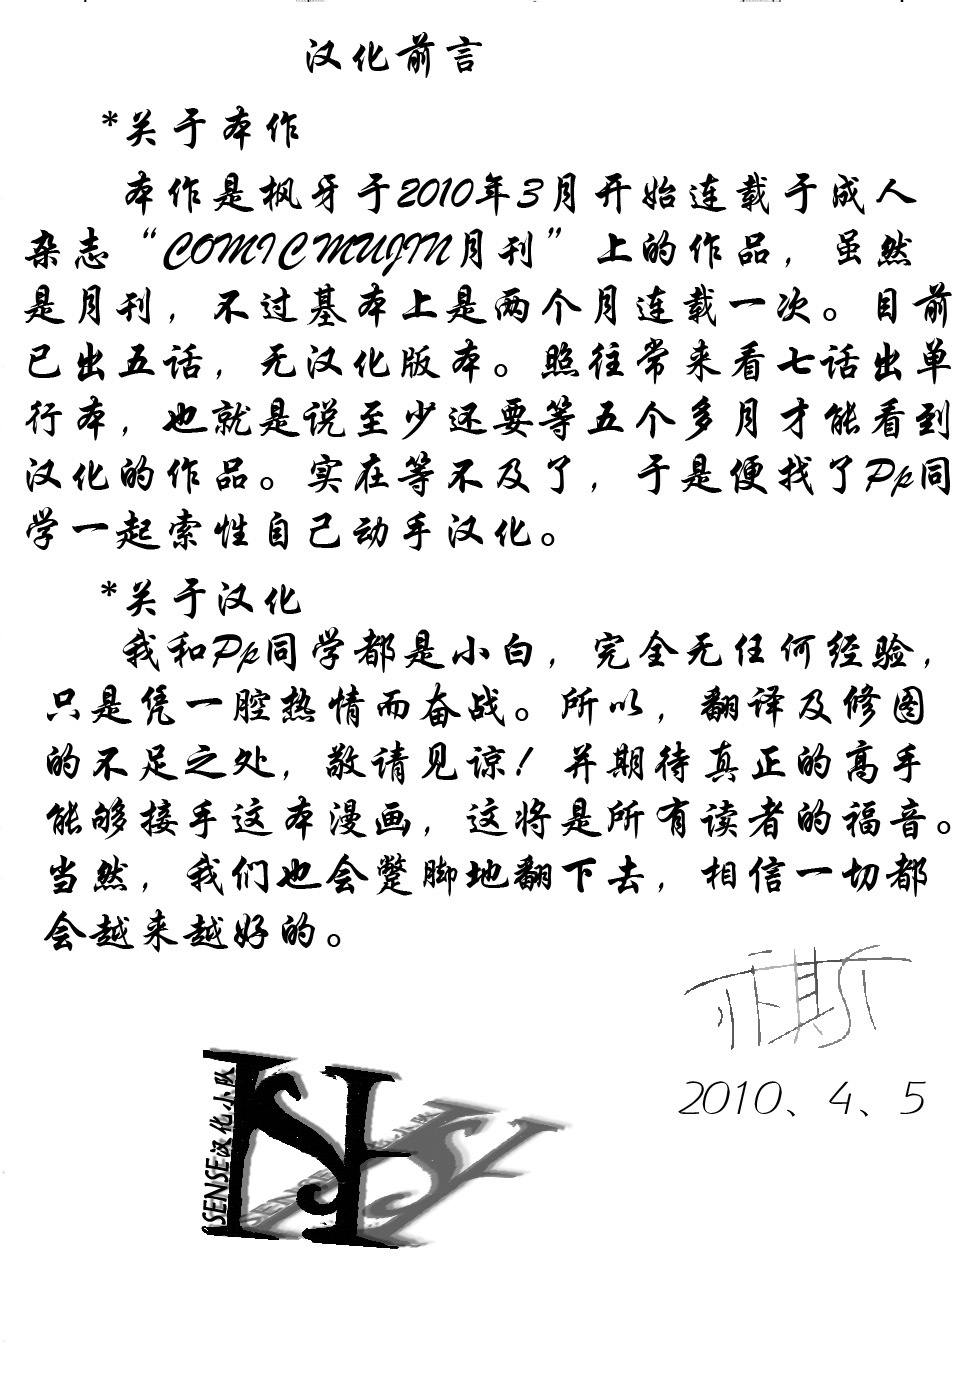 汉化前言
*关于本作
本作是枫牙于2010年3月开始连载于成人
杂志“COMIC MUJIN月刊”上的作品，虽然
是月刊，不过基本上是两个月连载一次。目前
已出五话，无汉化版本。照往常来看七话出单
行本，也就是说至少还要等五个多月才能看到
汉化的作品。实在等不及了，于是便找了Pp同
学一起索性自己动手汉化。
*关于汉化
我和Pp同学都是小白，完全无任何经验，
只是凭一腔热情而奋战。所以，翻译及修图
的不足之处，敬请见谅！并期待真正的高手
能够接手这本漫画，这将是所有读者的福音。
当然，我们也会蹩脚地翻下去，相信一切都
会越来越好的。
2010、4、5
SENSE汉化小队